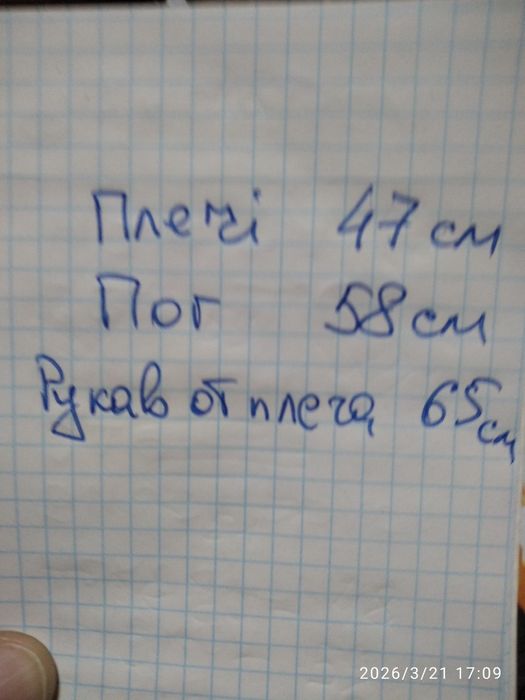 Плечі 47 см
Пог 58 см
Рукав от плеча 65 см
2026/3/21 17:09